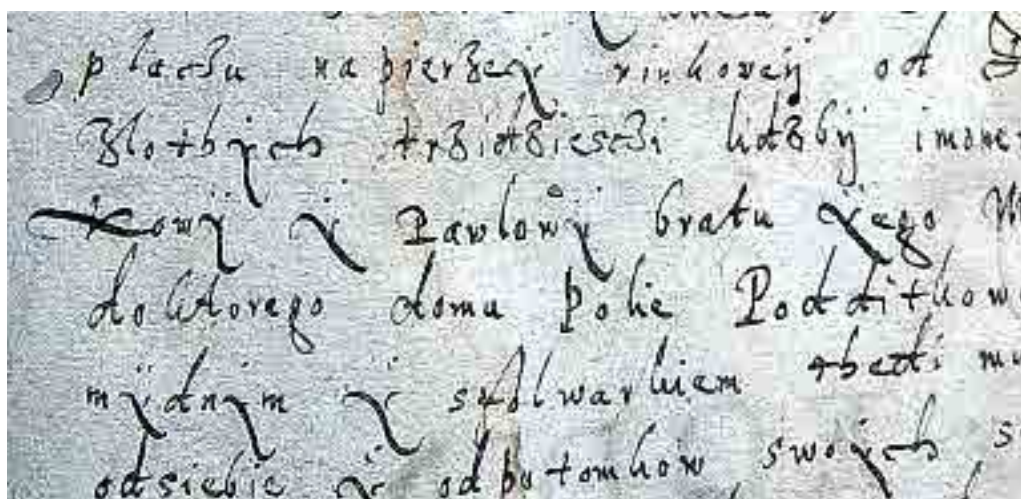 placzu na pierzeÿ rinkoweÿ od
zlothÿch trzidziesczi lidzbÿ imone
kowÿ ÿ Pawlowÿ bratu ÿego
doktorego domu Pole Poddithkow
mÿdnÿm ÿ sfolwarkiem tbedi
odsiebie ÿ odpotomkow swoÿch